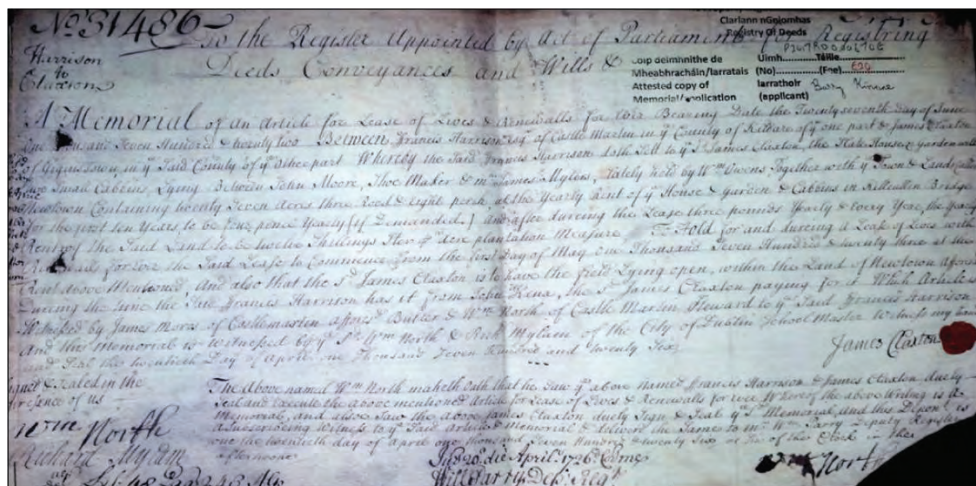 No: 31486
To the Register Appointed by Act of Parliament for Registring
Deeds Conveyances and Wills &
Harrison
to
Claxton
Clárlann nGníomhas
Registry Of Deeds
Uimh............Táille
Cóip deimhnithe de
Mheabhracháin/Iarratais (No)............(Fee) €20
Attested copy of Iarrathóir Barry Kinnee
Memorial/application (applicant)
A Memorial of an Article for Lease of Lives & Renewalls for Ever Bearing Date the Twenty seventh Day of June
One Thousand Seven Hundred & twenty two Between Francis Harrison Esqr of Castle Martin in ye County of Kildare of ye one part & James Claxton
of Gigins Town in ye Said County of ye Other part Whereby the Said Francis Harrison doth Sett to ye Sd James Claxton, the Slate House & garden with
two Small Cabbins, Lying Between John Moore, Shoe Maker & Mr James Mylers, lately held by Wm Owens Together with ye Town & Lands of
Newtown Containing twenty Seven acres three Rood & Eight perch at the Yearly Rent of ye House & garden & Cabbins in Killcullen Bridge
for the first ten Years, to be four pence Yearly (if Demanded) and after dureing the Lease three pounds Yearly & every Year, the Yearly
Rent of the Said Land to be twelve Shillings Ster pr acre plantation Measure To Hold for and dureing a Lease of Lives with
Renewals for ever the Said Lease to Commence from the first Day of May one Thousand Seven Hundred & twenty three at the
Rent above Mentioned And also that the Sd James Claxton is to have the field Lying open, within the Land of Newtown aforesd
Dureing the time the Said Francis Harrison has it from John Kena, the Sd James Claxton paying for it Which Article is
Witnessed by James Moros of Castlemartin affores Butler & Wm North of Castle Martin Steward to ye Said Francis Harrison
And this Memorial is Witnessed by ye Sd Wm North & Richd Mylam of the City of Dublin School Master Witness my hand
and Seal this twentieth Day of april one Thousand Seven Hundred and twenty Six
James Claxton
Signed & Sealed in the
presence of us
Wm North
Richard Mylam
The Above named Wm North maketh oath that he Saw ye above named Francis Harrison & James Claxton duely
Seal and Execute the above mentioned Article for Lease of Lives & Renewalls for ever Whereof the above Writing is a
Memorial, and alsoe Saw the above James Claxton duely Sign & Seal ye Sd Memorial, and this Depont is
a Subscribing Witness to ye Said Article & Memorial & delivered the Same to Mr Wm Parry Deputy Register
on the twentieth day of april one thous and Seven Hundred & twenty Six at of the Clock in the
afternoone
Jur 20o die April 1726 Corm
Will Parry Dep Regr
Wm North